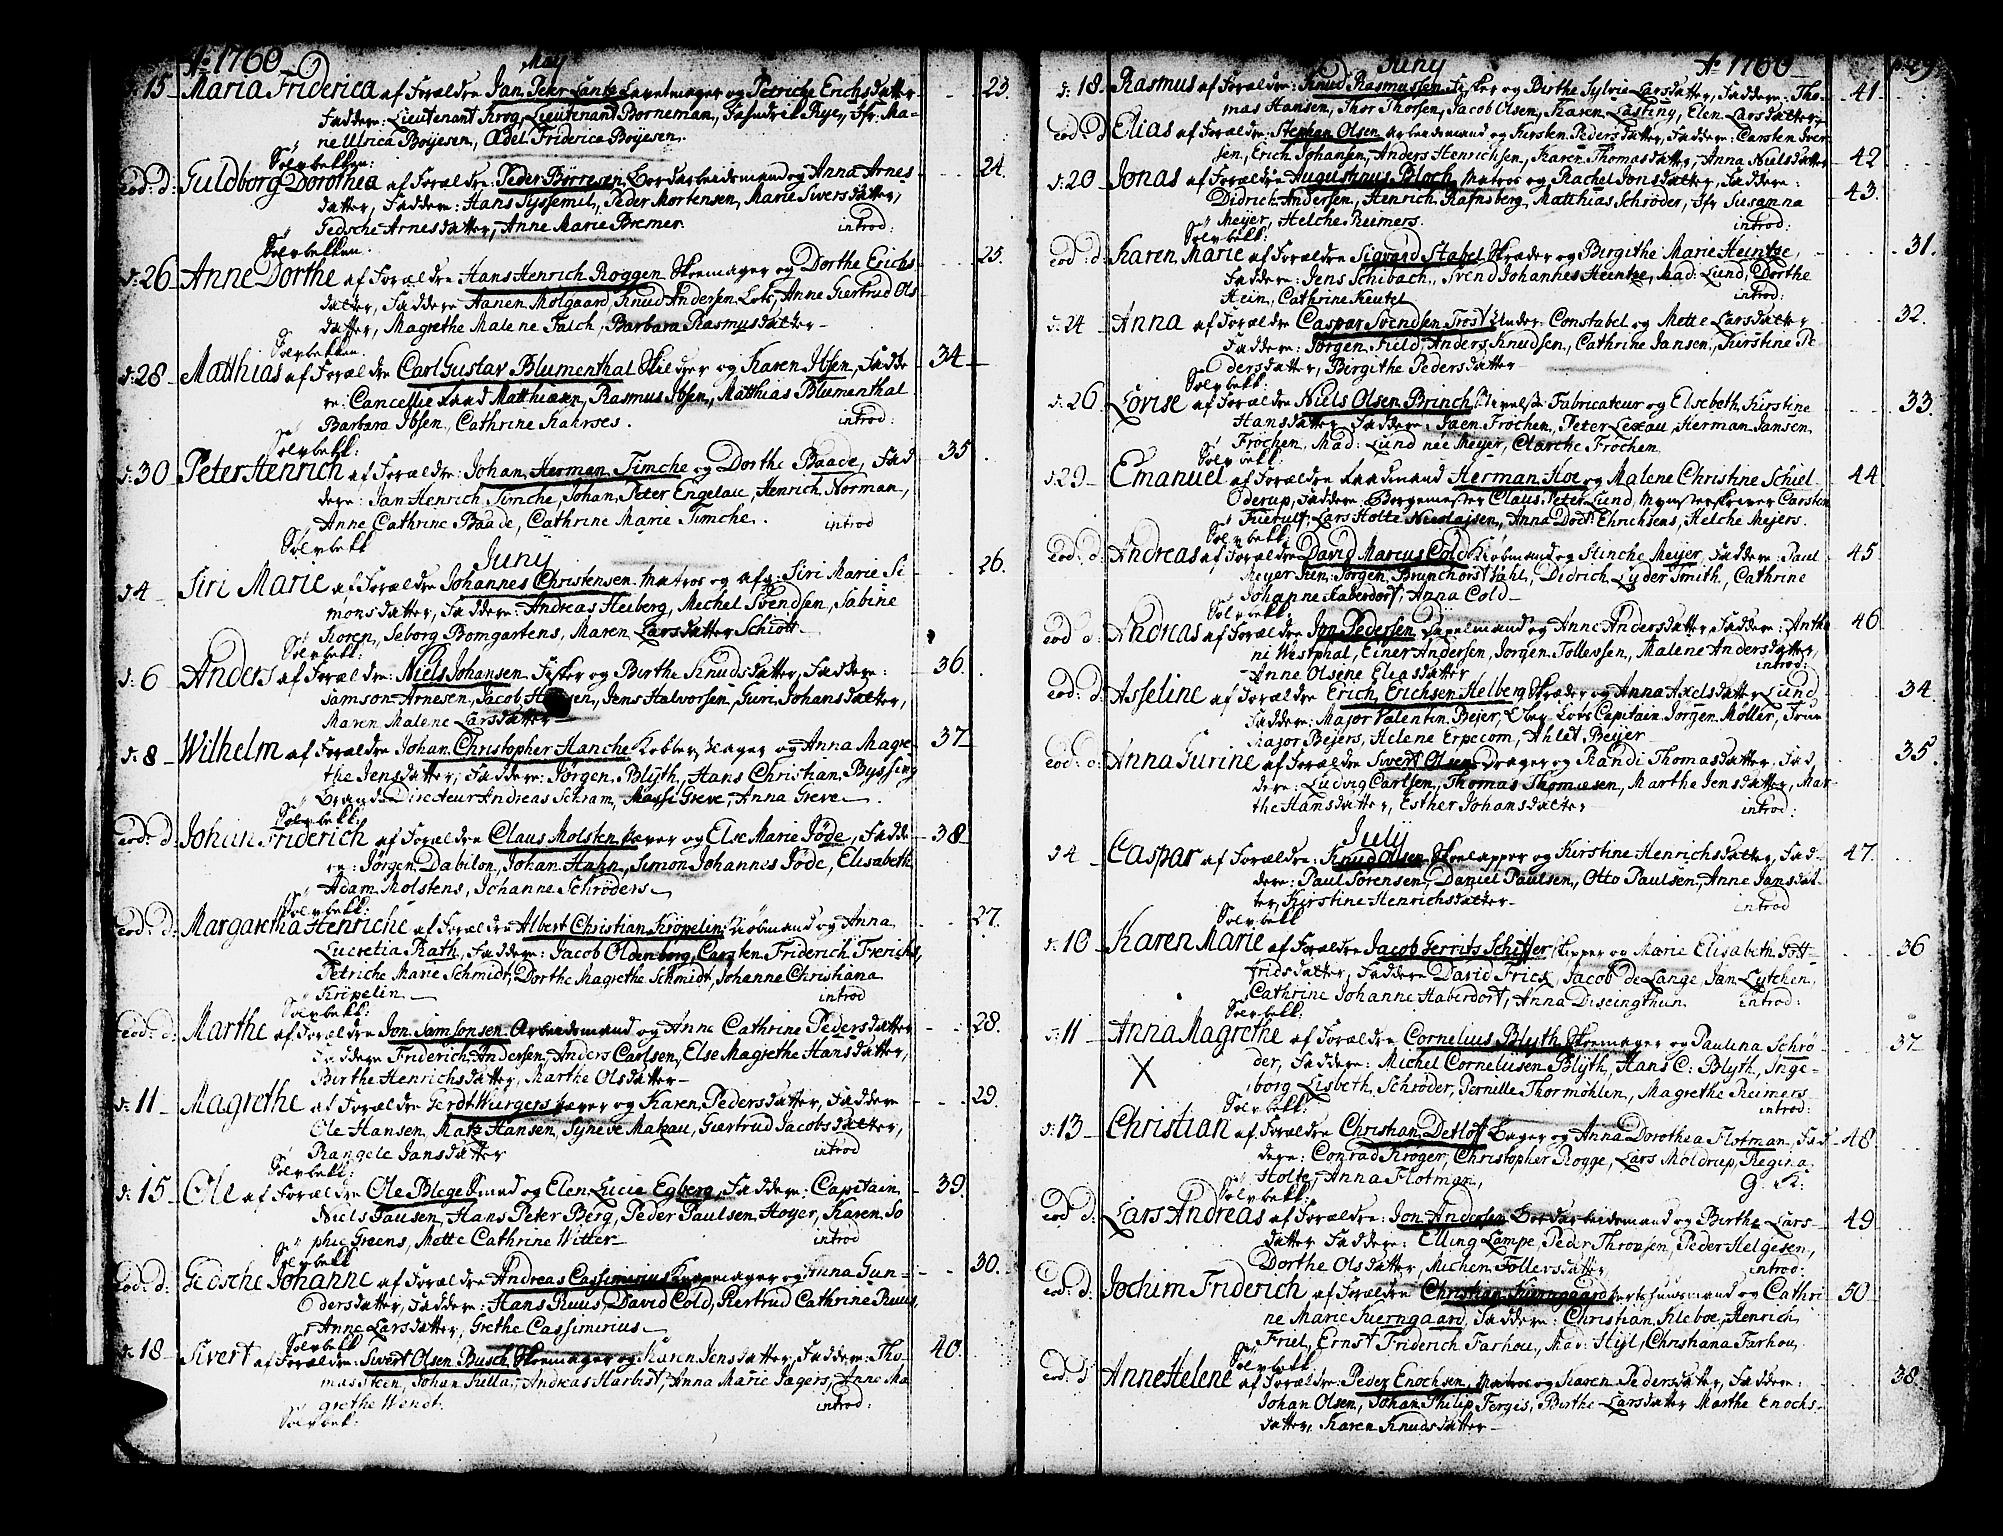 Ao 1760 May
d: 15 Maria Friderica af Forældre Jan Peter Lantz og Petriche Erichsdatter 23.
Faddere: Lieutenant Krog, Lieutenant Borneman, Rye, Jfr: Ma-
ne Ulrica Boyesen, Ædel Friderica Boyesen.
Sølvbekken:
eod: d: Guldborg Dorothea af Forældre: Peder Børresen Bordarbeidsmand og Anna Arnes- 24.
datter, Faddere: Hans Syssemil, Peder Mortensen, Marie Siversdatter,
Tedsche Arnesdatter, Anne Marie Bremer. introd:
Sølvbekken.
d: 26 Anne Dorthe af Forældre Hans Henrich Roggen Skoemager og Dorthe Erichs- 25.
datter, Faddere Hanen Molgaard, Knud Andersen Lots, Anne Giertrud Ols
datter, Magrethe Malene Falch, Barbara Rasmusdatter
Sølvbekken.
d: 28 Matthias af Forældre Carl Gustav Blumenthal Skilder og Karen Ibsen, Fadde 34
re: Cancellie Raad Matthiæsen, Rasmus Ibsen, Matthias Blumenthal
Barbara Ibsen, Cathrine Kahrses. introd:
Sølvbekk:
d: 30 Peter Henrich af Forældre: Johan Herman Timche og Dorthe Baade, Fad 35.
dere: Jan Henrich Timche, Johan Peter Engelau, Henrich Norman,
Anne Cathrine Baade, Cathrine Marie Timche. introd
Sølvbekk
Juny
d 4 Siri Marie af Forældre Johannes Christensen Matros og afg: Siri Marie Si 26.
monsdatter, Faddere: Andreas Heiberg, Mechel Svendsen, Sabine
Koren, Seborg Bomgartens, Maren Larsdatter Schiøtt
Sølvbekk:
d: 6 Anders af Forældre: Niels Johansen Fisker og Birthe Knudsdatter, Faddere: 36.
Samson Arnesen, Jacob Hansen, Jens Halvorsen, Guri Johansdatter,
Maren Malene Larsdatter
d: 8 Wilhelm af Forældre Johan Christopher Hanche Kobberslager og Anna Magre- 37
the Jensdatter, Faddere: Jørgen Blyth, Hans Christian Byssing
Brand Directeur Andreas Schram, Marsi Greve, Anna Greve.
Sølvbekk:
eod: d: Johan Friderich af Forældre Claus Molsten Væver og Else Marie Jøde, Fadde 38
re: Jørgen Dabilon, Johan Hahn, Simon Johannes Jøde, Elisabeth
Adam Molstens, Johanne Schrøders
Sølvbekk:
eod: d: Margaretha Henriche af Forældre Albert Christian Krøpelin Kiøbmand og Anna 27.
Lucretia Rath, Faddere: Jacob Oldenborg, Carsten Friderich Frerichs,
Petriche Marie Schmidt, Dorthe Magrethe Schmidt, Johanne Christiana
Krøpelin introd
Sølvbekk:
eod: d: Marthe af Forældre Jon Samsonsen Arbeidsmand og Anne Cathrine Pedersdatter 28.
Faddere Friderich Andersen, Anders Carlsen, Else Magrethe Hansdatter,
Birthe Henrichsdatter, Marthe Olsdatter
d: 11 Magrethe af Forældre Gerdt Wurgers Væver og Karen Pedersdatter, Faddere 29.
Ole Hansen, Matz Hansen, Syneve Matzau, Giertrud Jacobsdatter,
Rangele Jansdatter introd
Sølvbekk:
d: 15 Ole af Forældre Ole Blege Smed og Elen Lucie Egberg, Faddere: Capitain 39.
Niels Pausen, Hans Peter Berg, Peder Paulsen Hoyer, Karen So
phie Greens, Mette Cathrine Witter introd
Sølvbekk
eod: d: Gedsche Johanne af Forældre Andreas Cassimerius Knapmager og Anna Gun- 30.
dersdatter, Faddere: Hans Ruus, David Cold, Giertrud Cathrine Ruus,
Anne Larsdatter, Grethe Cassimerius
Sølvbekk
d: 18 Sivert af Forældre: Sivert Olsen Busch Skoemager og Karen Jensdatter, Faddere: Tho- 40.
mas Stein, Johan Fulla, Andreas Harbist, Anna Marie Jagers, Anne Ma
grethe Wendt. introd:
Sølvbek:
Juny Ao 1760
d: 18. Rasmus af Forældre: Knud Rasmussen Fisker og Birthe Sylvie Larsdatter, Faddere: Tho- 41.
mas Hansen, Thor Thorsen, Jacob Olsen, Karen Lasting, Elen Larsdatter
eod d Elias af Forældre: Stephen Olsen Arbeidsmand og Kirsten Pedersdatter, Faddere: Carsten Iver
sen, Erich Johansen, Anders Henrichsen, Karen Thomasdatter, Anna Nielsdatter 42
d: 20 Jonas af Forældre Augustinus Bloch Matros og Rachel Jonsdatter, Faddere: 43.
Didrich Andersen, Henrich Rafnsberg, Matthias Schrøder, Jfr Susanna
Meyer, Helche Reimers. introd:
Sølvbekk:
eod: d: Karen Marie af Forældre Sigvard Stabel Skræder og Birgithe Marie Heintze, 31.
Faddere: Jens Schibach, Svend Johannes Heintze, Mad: Lund, Dorthe
Hein, Cathrine Keutel introd:
d: 24 Anna af Forældre Caspar Svendsen Trost Under Constabel og Mette Larsdatter 32.
Faddere: Jørgen Fuld, Anders Knudsen, Cathrine Jansen, Kirstine Pe
dersdatter, Birgithe Pedersdatter
Sølvbekk:
d: 26 Lovise af Forældre Niels Olsen Brinch Stivelse Fabricateur og Elsebeth Kirstine 33.
Hansdatter Faddere: Jaen Frochen, Peter Lexau, Herman Jansen
Frochen, Mad: Lund née Meyer, Clarche Frochen
Sølvbekk:
d: 29 Emanuel af Forældre Raadmand Herman Hoe og Malene Christine Schiel 44.
Oderup, Faddere: Borgemester Claus Peter Lund, Mynsterskriver Carsten
Fuerulf, Lars Holte Nicolajsen, Anna Dort: Ehrichsens, Helche Mejers.
Sølvbekk:
eod: d: Andreas af Forældre David Marcus Cold Kiøbmand og Stinche Meyer, Faddere: Paul 45
Meyer Sen: Jørgen Brunchorst Vahl, Didrich Lyder Smith, Cathrine
Johanne Haberdorf, Anna Cold
Sølvbekk:
eod d: Andreas af Forældre Jon Pedersen Væpelmand og Anne Andersdatter, Faddere: Antho 46.
ni Westphal, Einer Andersen, Jørgen Tollevsen, Malene Andersdatter,
Anne Olsene Eliasdatter introd:
eod: d. Asseline af Forældre Erich Erichsen Helberg Skræder og Anna Axelsdatter Lund 34
Faddere: Major Valentin Bejer, Over Lots Capitain Jørgen Møller, Frue
Major Bejers, Helene Erpecom, Ahlet Beijer
eod: d: Anna Gurine af Forældre Sivert Olsen Drager og Randi Thomasdatter, Fad 35.
dere: Ludvig Carlsen, Thomas Thomæsen, Marthe Jensdatter, Mar-
the Hansdatter, Esther Johansdatter introd:
July
d 4 Caspar af Forældre: Knud Olsen Skoelapper og Kirstine Henrichsdatter, Fad- 47.
dere: Paul Sørensen, Daniel Paulsen, Otto Paulsen, Anne Jansdat-
ter, Kirstine Henrichsdatter introd
Sølvbekk
d: 10 Karen Marie af Forældre Jacob Gerrits Schiffer Skipper og Marie Elisabeth Gott- 36
fridsdatter, Faddere David Fries, Jacob de Lange, Jan Lytchen,
Cathrine Johanne Haberdorf, Anna Diseingthun introd:
Sølvbekk:
d: 11 Anna Magrethe af Forældre Cornelius Blyth Skoemager og Paulina Schrø- 37
X der, Faddere: Michel Corneliusen Blyth, Hans C: Blyth, Inge-
borg Lisbeth Schrøder, Pernille Thormøhlen, Magrethe Reimers
Sølvbekk: introd:
d: 13 Christian af Forældre Christian Detløff Bager og Anna Dorothea Flotman, Fad 48.
dere: Conrad Krøger, Christopher Rogge, Lars Moldrup, Regina
Holte, Anna Flotman,
Sølvbekk:
eod d: Lars Andreas af Forældre: Jon Andersen Bordarbeidsmand og Birthe Lars- 49
datter Faddere: Elling Lampe, Peder Thronsen, Peder Helgesen,
Dorthe Olsdatter, Michen Follersdatter introd:
eod: d. Jochim Friderich af Forældre Christian Kierngaard Vertshuusmand og Cathri 50
ne Marie Kierngaard, Faddere: Christian Kleboe, Henrich
Friel, Ernst Friderich Farhou, Mad: Hyl, Christiana Farhou.
Sølvbekk:
eod: d Anne Helene af Forældre: Peder Enochsen Matros og Karen Pedersdatter, Faddere: 38.
Johan Olsen, Johan Philip Fergis, Birthe Larsdatter Marthe Enochs-
datter, Karen Knudsdatter